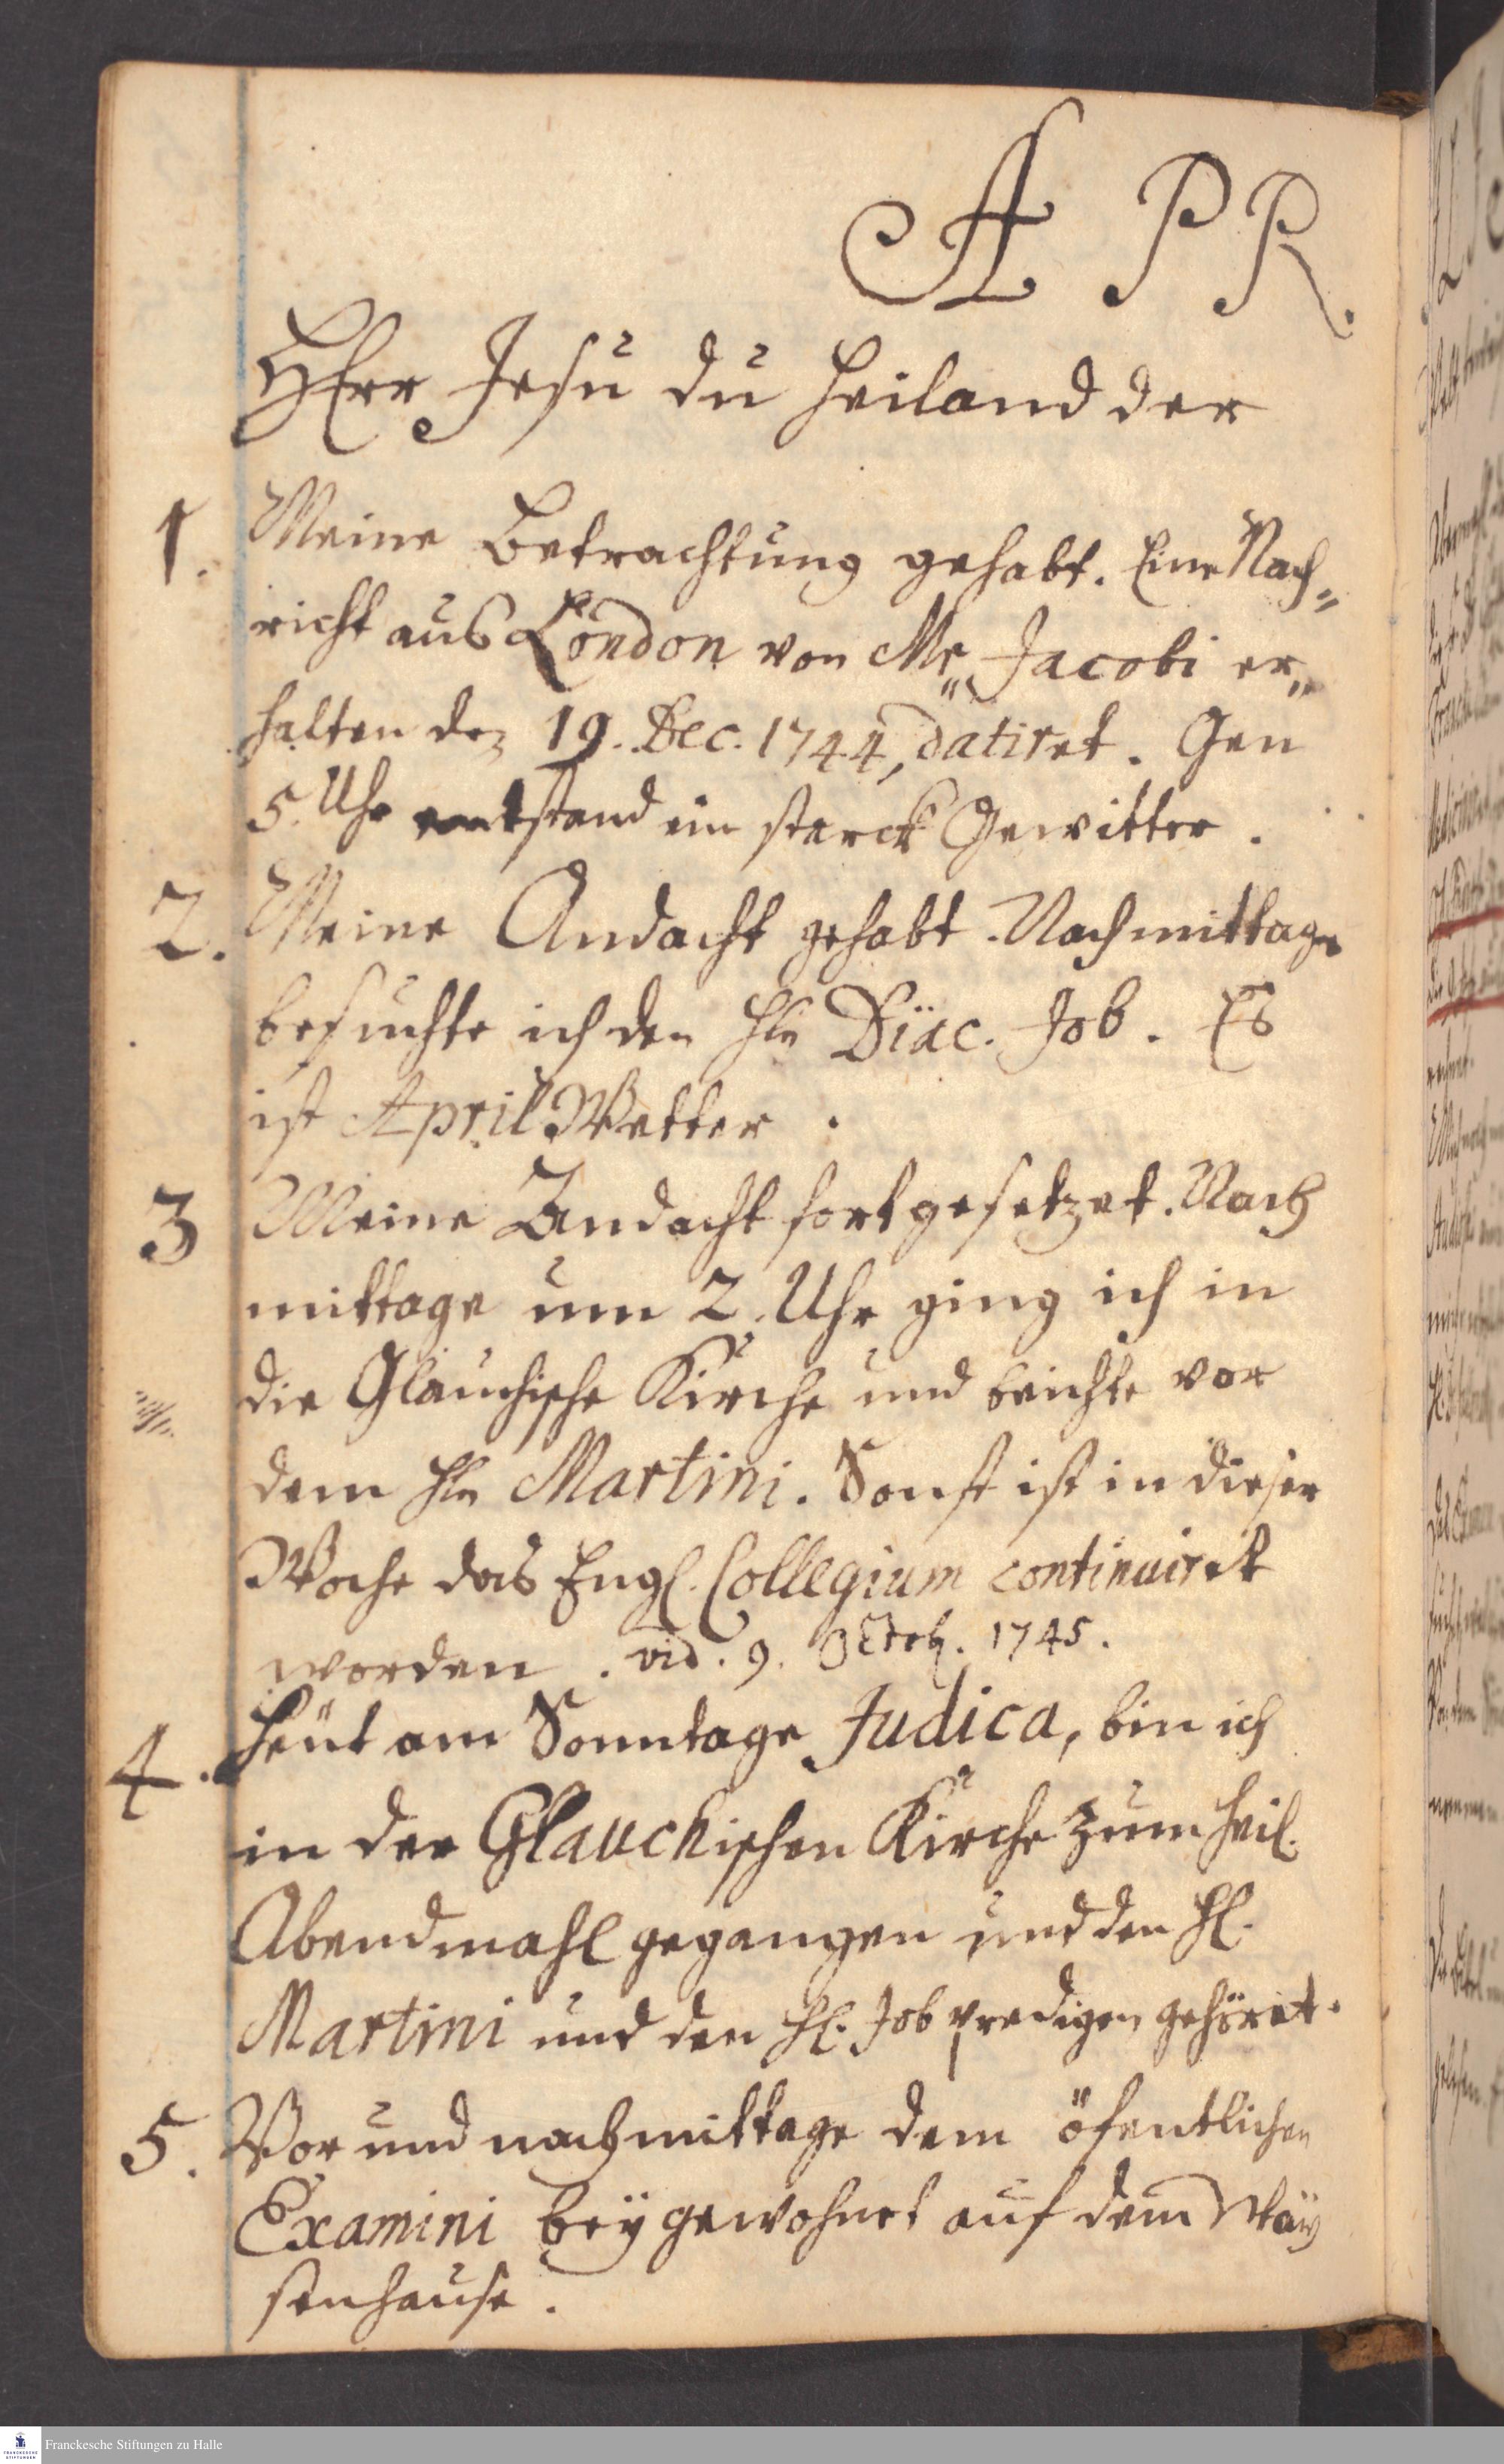 A P R.
HErr Jesu du Heiland der
1. Meine Betrachtung gehabt. Eine Nach„
richt aus London von Mr„ Jacobi er„
halten dez 19. Dec. 1744, datiret. Gen
5. Uhr entstand ein starck Gewitter.
2. Meine Andacht gehabt. Nachmittage
besuchte ich den Hln Diac. Job. Es
ist April Wetter.
3 Meine Andacht fortgesetzet. Nach
mittage um 2. Uhr ging ich in
die Glauchische Kirche und beichte vor
dem Hln Martini. Sonst ist in dieser
Woche das Engl. Collegium continuiret
worden. vid. 9. Octob. 1745.
4. Heut am Sonntage Judica, bin ich
in der Glauchischen Kirche zum heil.
Abendmahl gegangen und den Hl.
Martini und den Hl. Job predigen gehöret.
5. Vor und nachmittage dem öfentlichen
Examini beygewohnet auf dem Wäy
senhause.
Franckesche Stiftungen zu Halle